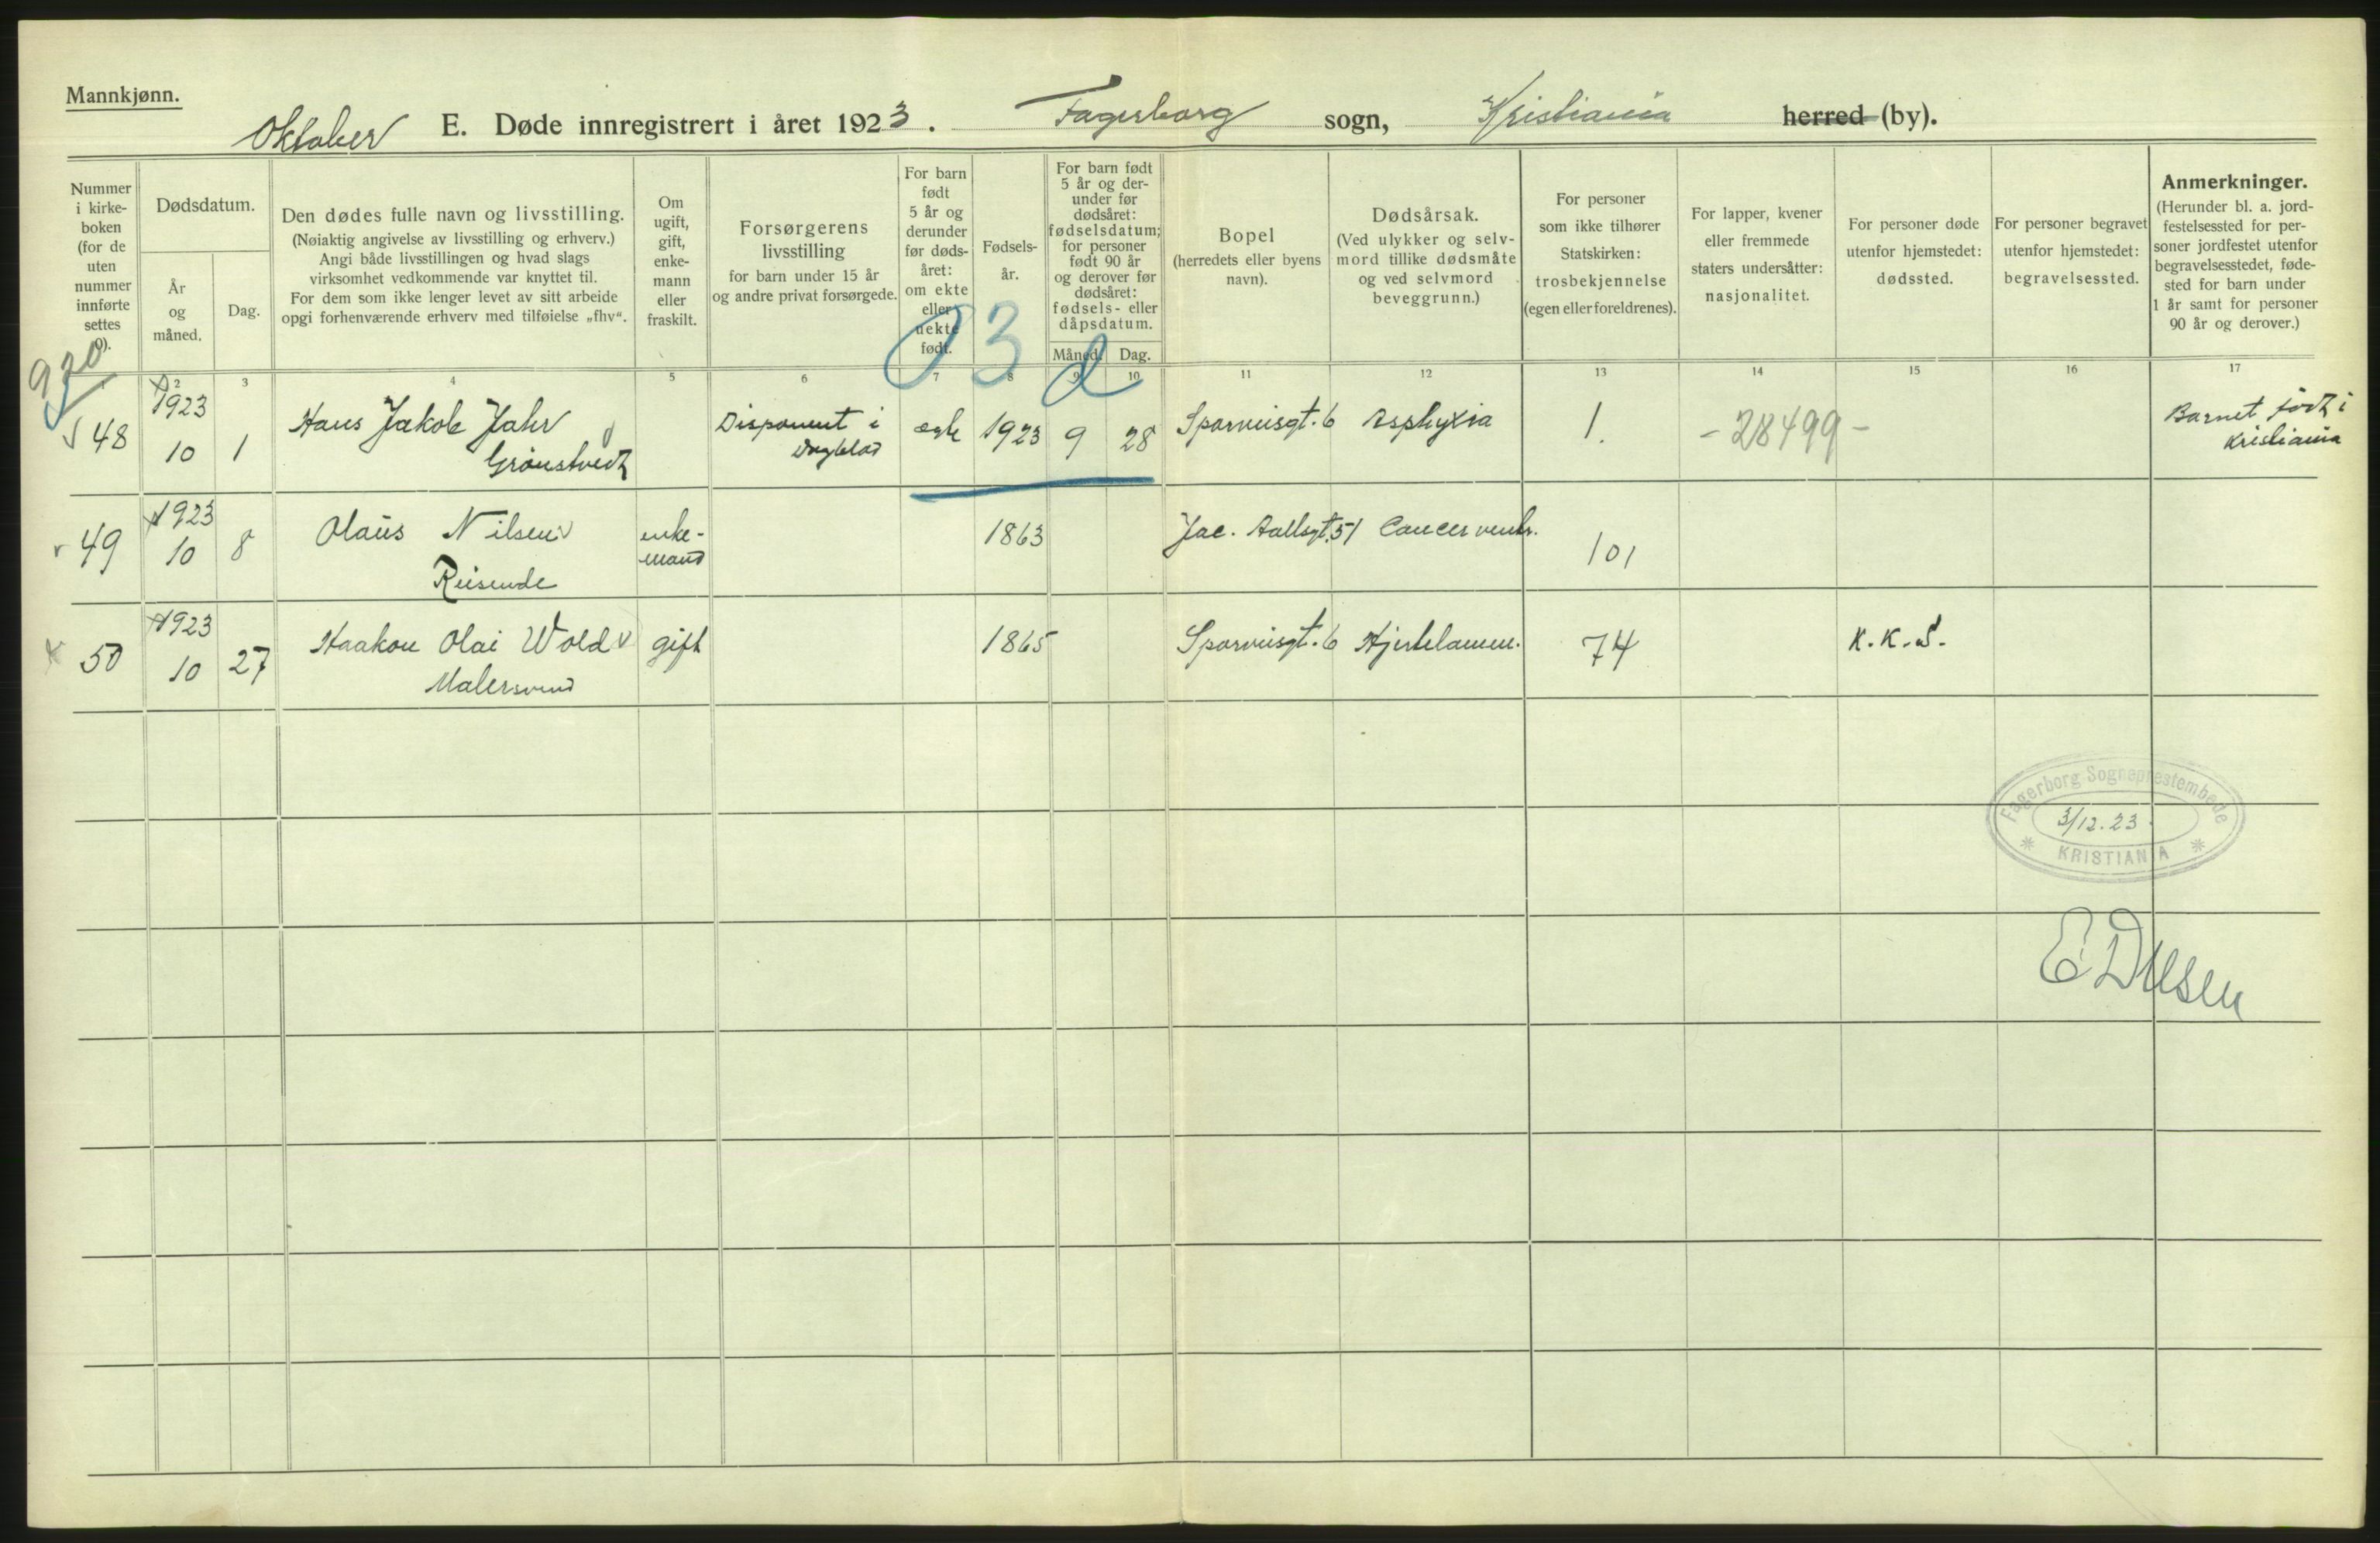 Mannkjønn.
Oktober E. Døde innregistrert i året 1923. Fagerborg sogn, Kristiania herred (by).
Nummer
i kirke-
boken
(for de
uten
nummer
innførte
settes
0).
Dødsdatum.
År
og
måned.
Dag.
Den dødes fulle navn og livsstilling.
(Nøiaktig angivelse av livsstilling og erhverv.)
Angi både livsstillingen og hvad slags
virksomhet vedkommende var knyttet til.
For dem som ikke lenger levet av sitt arbeide
opgi forhenværende erhverv med tilføielse „fhv“.
Om
ugift,
gift,
enke-
mann
eller
fraskilt.
Forsørgerens
livsstilling
for barn under 15 år
og andre privat forsørgede.
For barn
født
5 år og
derunder
før døds-
året:
om ekte
eller
uekte
født.
Fødsels-
år.
For barn født
5 år og der-
under før
dødsåret:
fødselsdatum;
for personer
født 90 år
og derover før
dødsåret:
fødsels- eller
dåpsdatum.
Måned. Dag.
Bopel
(herredets eller byens
navn).
Dødsårsak.
(Ved ulykker og selv-
mord tillike dødsmåte
og ved selvmord
beveggrunn.)
For personer
som ikke tilhører
Statskirken:
trosbekjennelse
(egen eller foreldrenes).
For lapper, kvener
eller fremmede
staters undersåtter:
nasjonalitet.
For personer døde
utenfor hjemstedet:
dødssted.
For personer begravet
utenfor hjemstedet:
begravelsessted.
Anmerkninger.
(Herunder bl. a. jord-
festelsessted for per-
soner jordfestet utenfor
begravelsesstedet, føde-
sted for barn under
1 år samt for personer
90 år og derover.)
920
03
d
1 2 3 4 5 6 7 8 9 10 11 12 13 14 15 16 17
48 1923 10 1 Hans Jakob Jahr
Grønstvedt
Disponent i
Dagblad
egte 1923 9 28 Sporveisgt. 6 Asphyxia 1. -28499- Barnet født i
Kristiania
49 1923 10 8 Olaus Nilsen
Reisende
enke-
mand
1863 Jac. Aallsgt. 51 Cancer ventr. 101
50 1923 10 27 Haakon Olai Wold
Malersvend
gift 1865 Sporveisgt. 6 Hjertelamm. 74 K.K.S.
Fagerborg Sogneprestembede
3/12.23.
KRISTIANIA